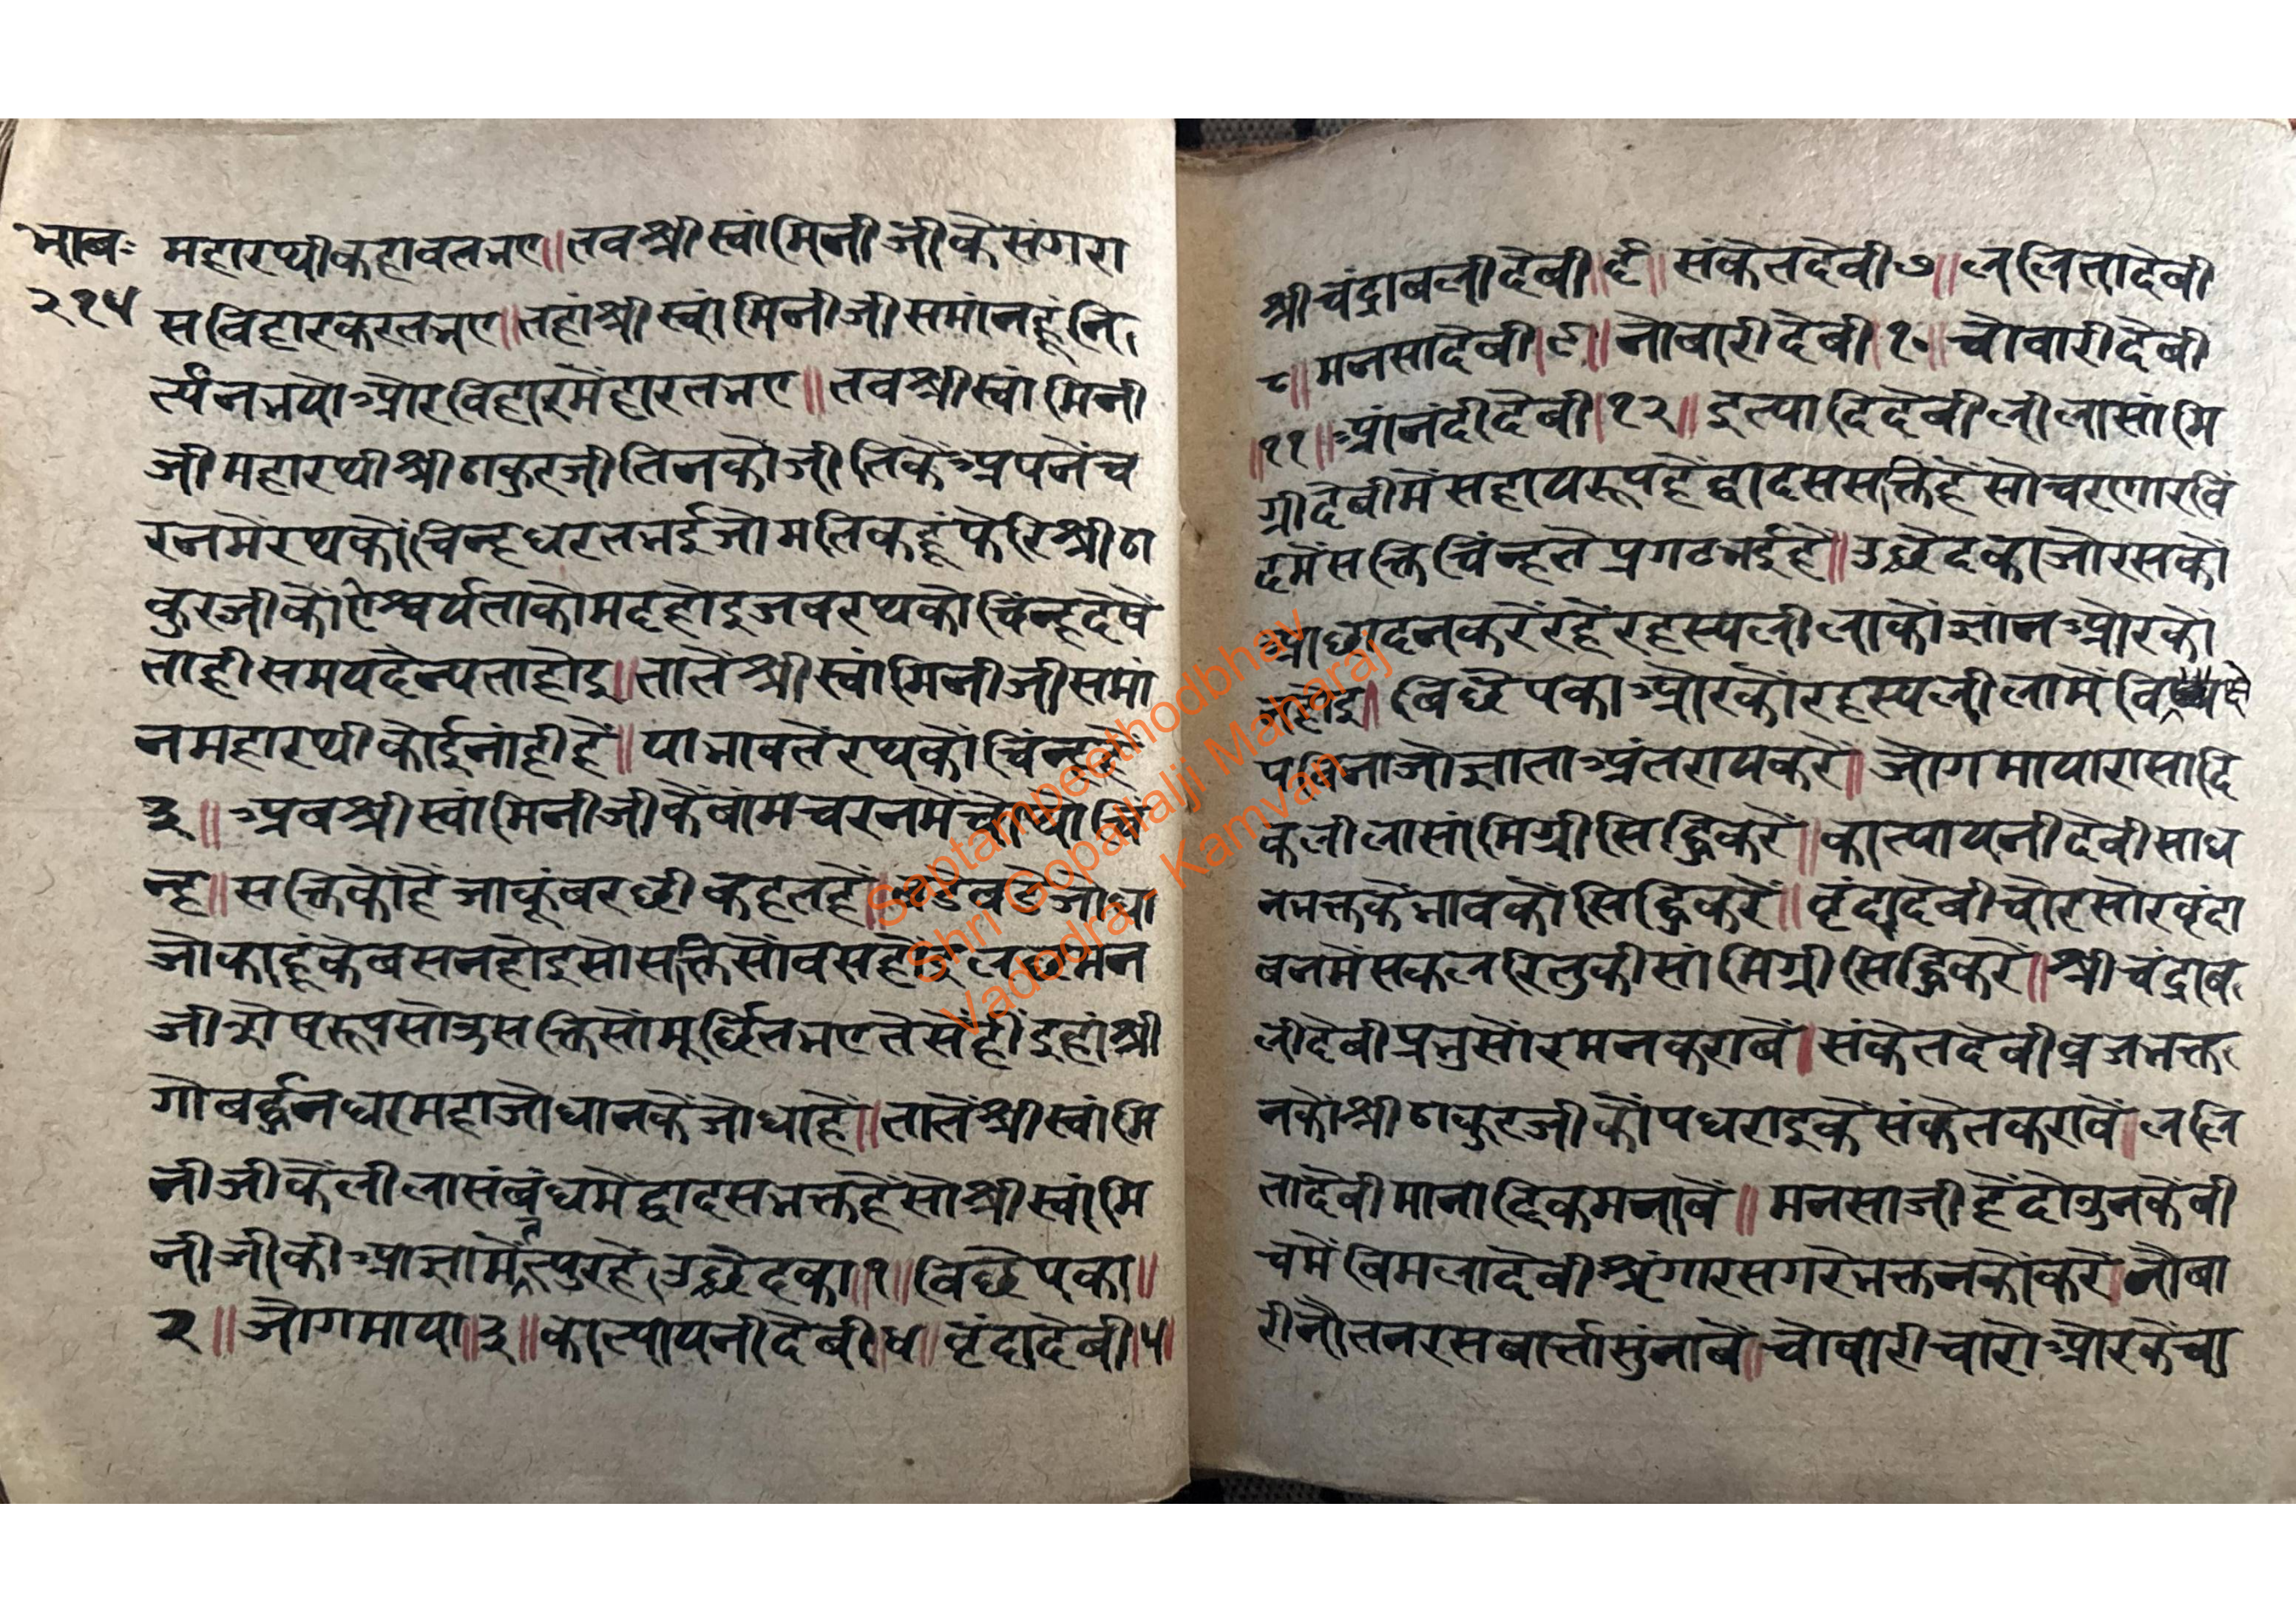 भाव:
२१५
महारथीकहावतभए॥तवश्रीस्वांमिनीजीकेसंगरा
सविहारकरतभए॥तहांश्रीस्वांमिनीजीसमांनहूंनि
र्त्यंनभयोऔरविहारमेंहारतभए॥तवश्रीस्वांमिनी
जीमहारथीश्रीठाकुरजीतिनकोंजीतिकेंअपनेंच
रनमेंरथकोंचिन्हधरतभईजोमतिकहूंफेरिश्रीठा
कुरजीकोंऐश्वर्यताकोमदहोइजवरथकोचिंन्हदेषें
ताहीसमयदैन्यताहोइ॥तातेंश्रीस्वांमिनीजीसमां
नमहारथीकोईनांहीहें॥याभावतेंरथकोंचिंन्हहें
३॥अवश्रीस्वांमिनीजीकेंवांमचरनमेंचोथोचि
न्ह॥सक्तिकोंहैजाकूंबरछीकहतहें॥वडेवडेजोधा
जोकाहूंकेबसनहोइसोसक्तिसोंवसहोइलछमन
जीसेषरूपसोउसक्तिसोंमूर्छितभएतेसेंहींइहांश्री
गोबर्द्धनधरमहाजोधानकेंजोधाहें॥तातेंश्रीस्वांमि
नीजीकेंलीलासंबंधमेंद्वादसभक्तहेंसोश्रीस्वांमि
नीजीकीआज्ञामेंतत्पुरहें।उछेदका॥१॥विछेपका॥
२॥जोगमाया॥३॥कात्यायनीदेबी।४॥वृंदादेबी।५।
श्रीचंद्राबलीदेबी॥६॥संकेतदेबी७॥ललितादेबी
८॥मनसादेबी।९॥नोबारीदेबी।१०॥चोवारीदेबी
॥११॥आंनंदीदेबी।१२॥इत्यादिदेबीलीलासांमि
ग्रीदेबीमेंसहायरूपहेंद्वादससक्तिहेंसोचरणारविं
दमेंसक्तिचिंन्हतेप्रगटभईहै॥उछेदकाजोरसकों
आछादनकरेंरहेंरहस्यलीलाकोंज्ञांनओरकों
नहोइ॥बिछेपकाओरकोंरहस्यलीलामेंविछे
पबिनाजोज्ञाताअंतरायकरें॥जोगमायारासादि
कलीलासांमिग्रीसिद्धिकरें॥कात्यायनीदेवीसाध
नभक्तकेभावकोंसिद्धिकरें॥वृंदादेबीचोरसोरवृंदा
बनमेंसकलरितुकीसांमिग्रीसिद्धिकरें॥श्रीचंद्राब
लीदेबीप्रभुसोंरमनकराबें।संकेतदेवीब्रजभक्त
नकोंश्रीठाकुरजीकोंपधराइकेंसंकेतकरावें॥ललि
तादेबीमानादिकमनावें॥मनसाजीहेंदोउनकेंबी
चमेंबिमलादेबीश्रंगारसगरेभक्तनकोंकरें।नौबा
रीनौतनरसबार्त्तासुंनाबें॥चोवारीचारोओरकेंचा
Saptampeethodbhav
Shri Gopallalji Maharaj
Vadodra - Kamvan